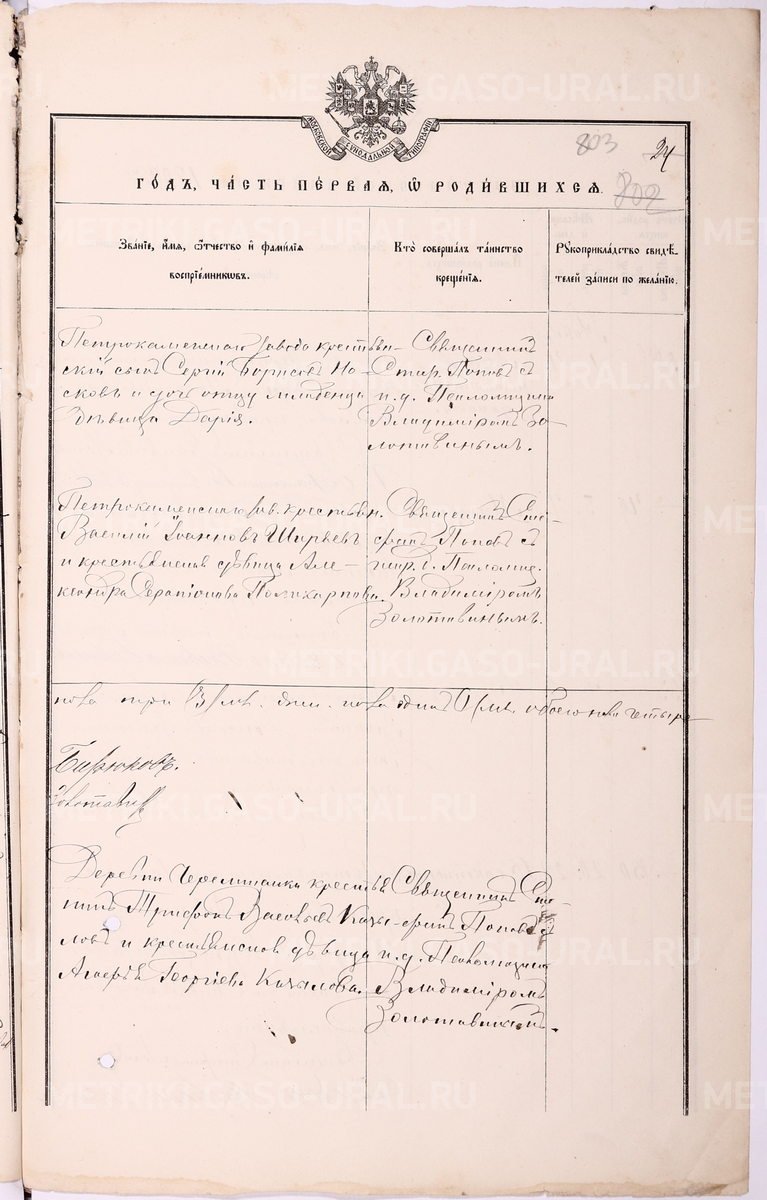 METRIKI.GASO-URAL.RU
МОСКОВСКОЙ СѴНОДАЛЬНОЙ ТИПОГРАФІИ
803
24
802
ГО́ДЪ, ЧА́СТЬ ПЕ́РВАЯ, Ѽ РОДИ́ВШИХСЯ.
Зва́нїе, и҆́мя, ѻ҆́тчество и҆ фами́лїя
воспрїе́мникѡвъ.
Кто̀ соверша́лъ та́инство
креще́нїя.
Рꙋкоприкла́дство свидѣ́-
телей за́писи по жела́нїю.
Петрокаменскаго завода крестьян-
скій сынъ Сергій Борисовъ Но-
сковъ и дочь отца младенца
дѣвица Дарія.
Священникъ
Поповъ съ
и. д. Псаломщика
Владиміромъ Зо-
лотавинымъ.
Петрокаменскаго зав. крестьян.
Василій Іоанновъ Ширяевъ
и крестьянская дѣвица Але-
ксандра Серапіонова Поликарпова.
Священникъ
Поповъ съ
Псаломщ.
Владиміромъ
Золотавинымъ.
пола три /3/ мл. жен. пола одна /1/ мл. обоего пола четыре
Бирюковъ.
Золотавин
Деревни Черемшанки крестья-
нинъ Трифонъ Васильевъ Казы-
ловъ и крестьянская дѣвица
Георгіева Казылова.
Священникъ
Поповъ съ
и. д. Псаломщика
Владиміромъ
Золотавинымъ.